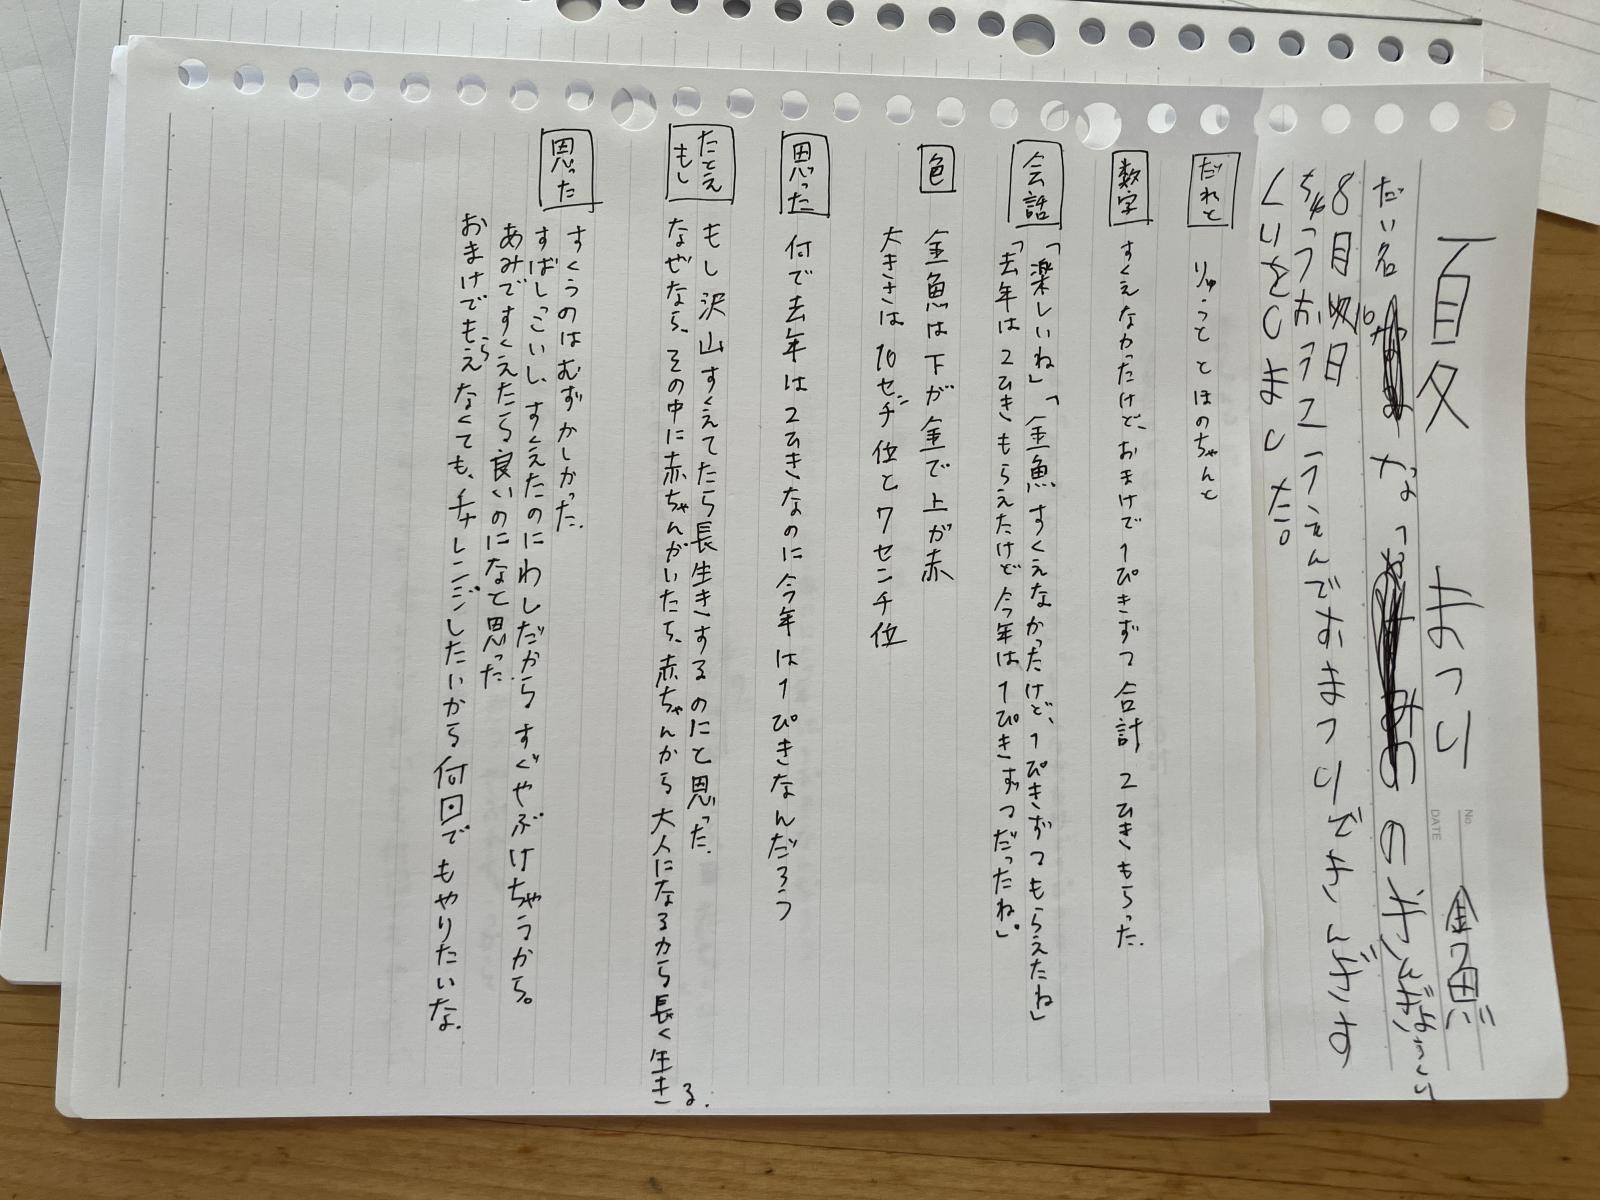 夏 まつり
No.
DATE
だい名 なつの きんぎょすくい
8月10日
ちゅうおうこうえんでおまつりできんぎょす
くいをしました。
だれと りゅうと とほのちゃんと
数字 すくえなかったけど、おまけで1ぴきずつ 合計 2ひきもらった.
会話 「楽しいね」「金魚すくえなかったけど、1ぴきずつもらえたね」
「去年は2ひきもらえたけど今年は1ぴきずつだったね。」
色 金魚は下が金で上が赤
大きさは10センチ位と7センチ位
思った 何で去年は2ひきなのに今年は1ぴきなんだろう
たとえ もし もし沢山すくえてたら長生きするのにと思った.
なぜなら、その中に赤ちゃんがいたら、赤ちゃんから大人になるから長く生きる.
思った すくうのはむずかしかった.
すばしっこいし、すくえたのにわしだからすぐやぶけちゃうから。
あみですくえたら良いのになと思った.
おまけでもらえなくても、チャレンジしたいから何回でもやりたいな.